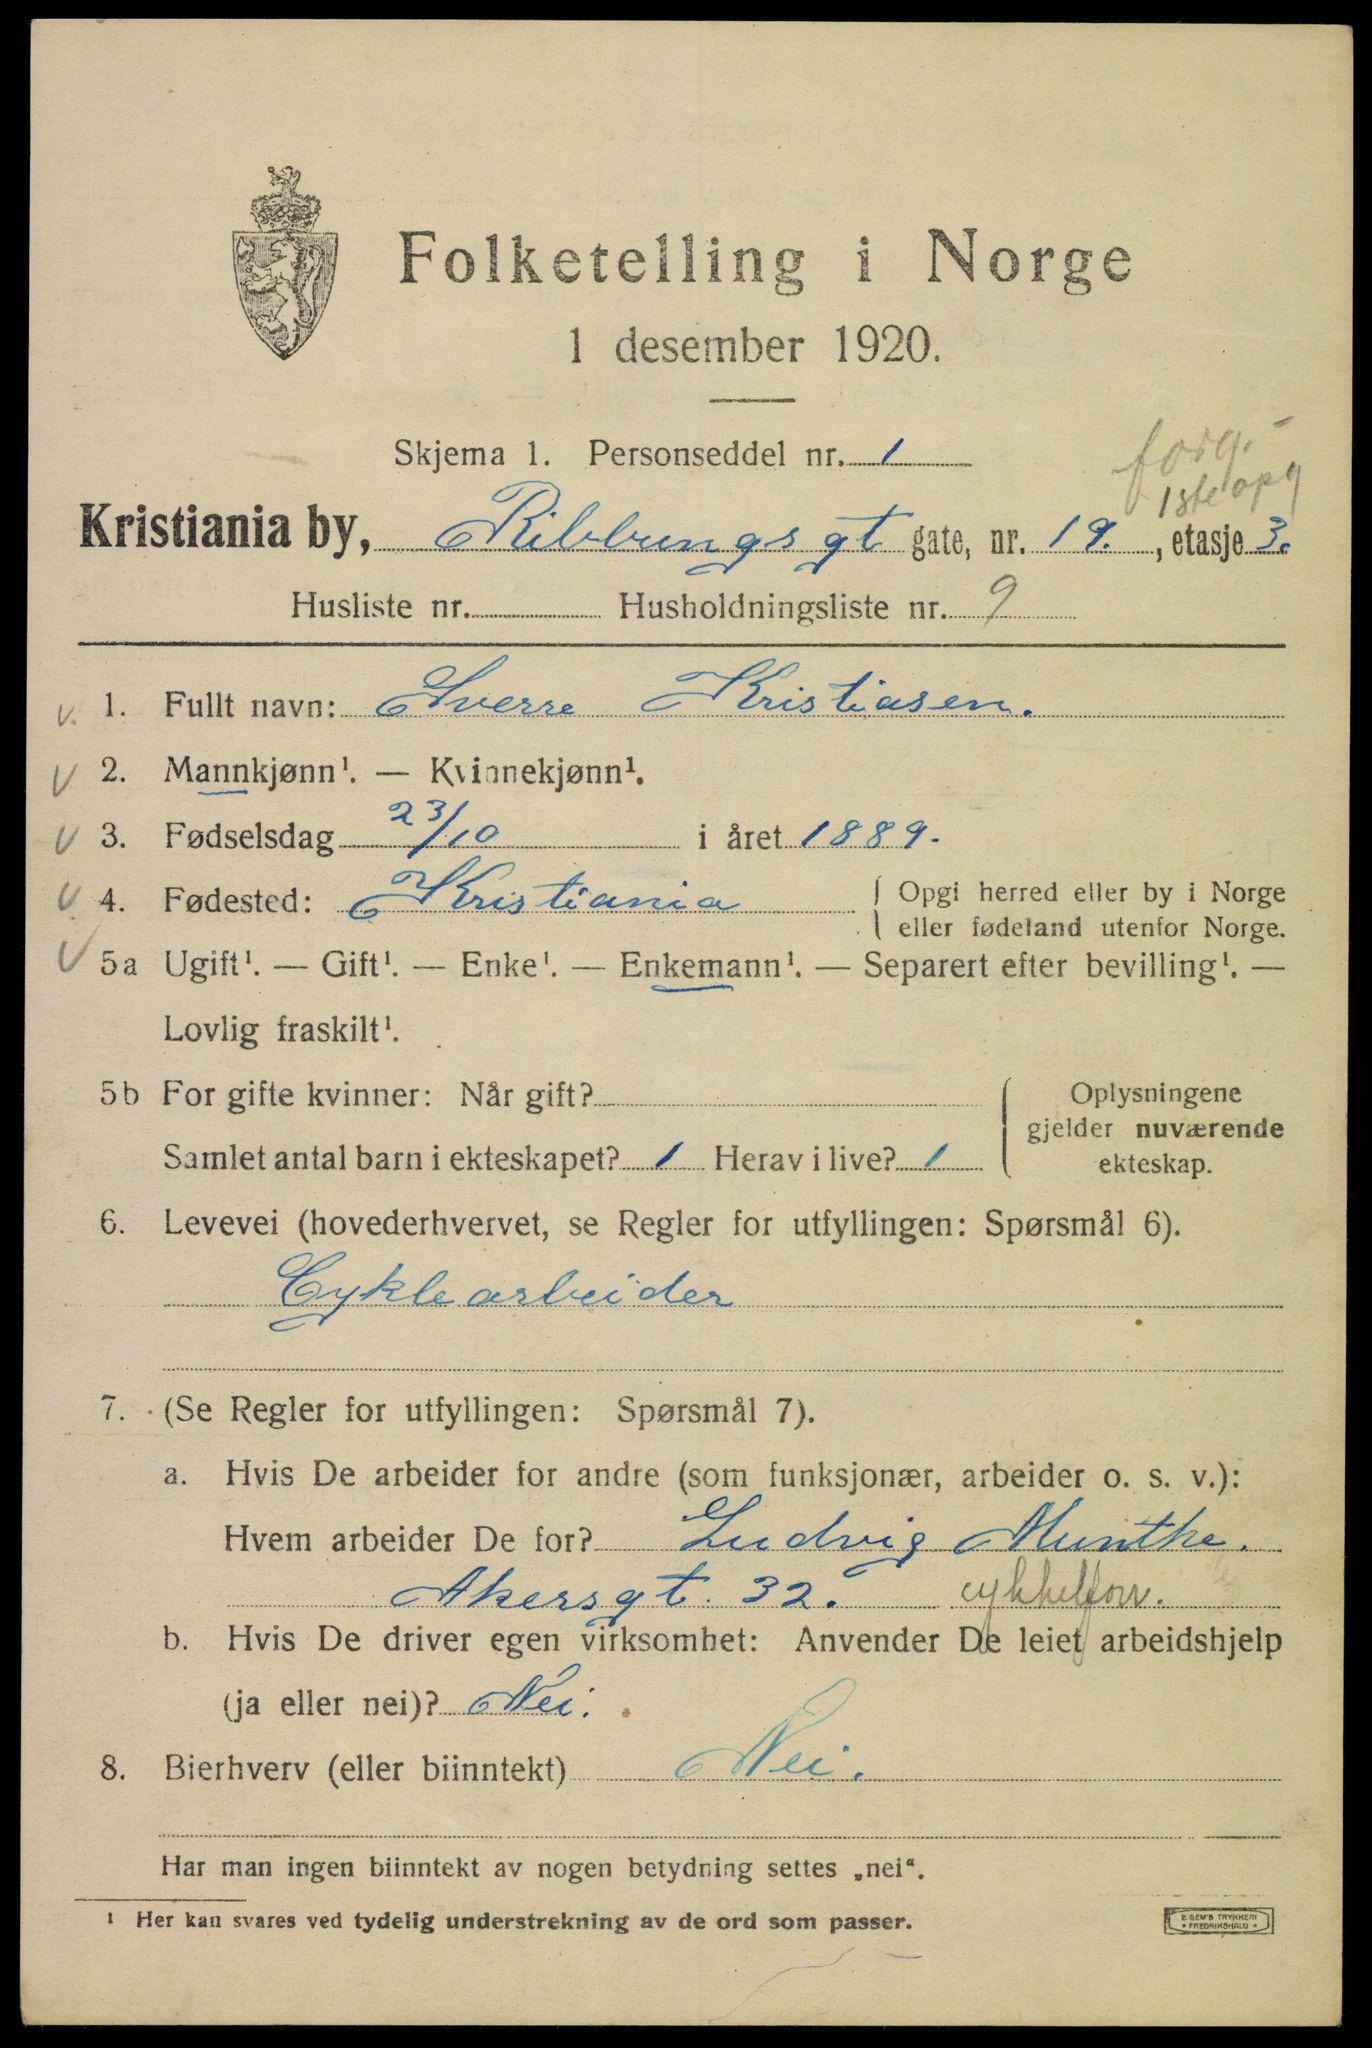 Folketelling i Norge
1 desember 1920.
Skjema 1. Personseddel nr. 1
forg.
1ste opg
Kristiania by, Ribbungsgt gate, nr. 19. , etasje 3.
Husliste nr. Husholdningsliste nr. 9
v. 1. Fullt navn: Sverre Kristiasen.
v 2. Mannkjønn¹. — Kvinnekjønn¹.
v 3. Fødselsdag 23/10 i året 1889.
v 4. Fødested: Kristiania { Opgi herred eller by i Norge
eller fødeland utenfor Norge.
v 5a Ugift¹. — Gift¹. — Enke¹. — Enkemann¹. — Separert efter bevilling¹. —
Lovlig fraskilt¹.
5b For gifte kvinner: Når gift? { Oplysningene
gjelder nuværende
Samlet antal barn i ekteskapet? 1 Herav i live? 1 ekteskap.
6. Levevei (hovederhvervet, se Regler for utfyllingen: Spørsmål 6).
Cyklearbeider
7. (Se Regler for utfyllingen: Spørsmål 7).
a. Hvis De arbeider for andre (som funksjonær, arbeider o. s. v.):
Hvem arbeider De for? Ludvig Munthe.
Akersgt. 32. cykkelforr.
b. Hvis De driver egen virksomhet: Anvender De leiet arbeidshjelp
(ja eller nei)? Nei.
8. Bierhverv (eller biinntekt) Nei.
Har man ingen biinntekt av nogen betydning settes „nei“.
¹ Her kan svares ved tydelig understrekning av de ord som passer.
E. SEM'S TRYKKERI
• FREDRIKSHALD •